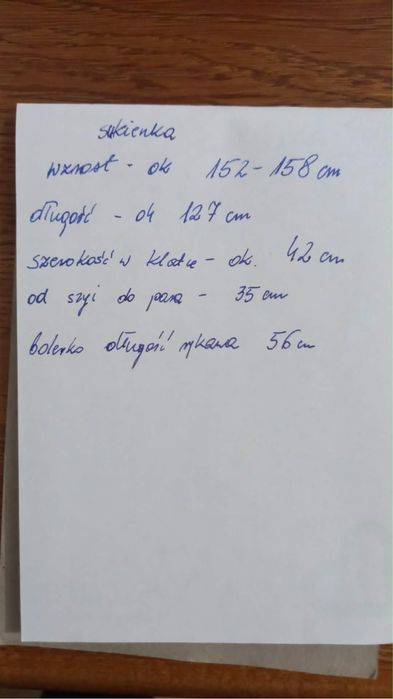 sukienka
wzrost - ok 152-158 cm
długość - ok 127 cm
szerokość w klatce - ok. 42 cm
od szyi do pasa - 35 cm
bolerko długość rękawa 56 cm